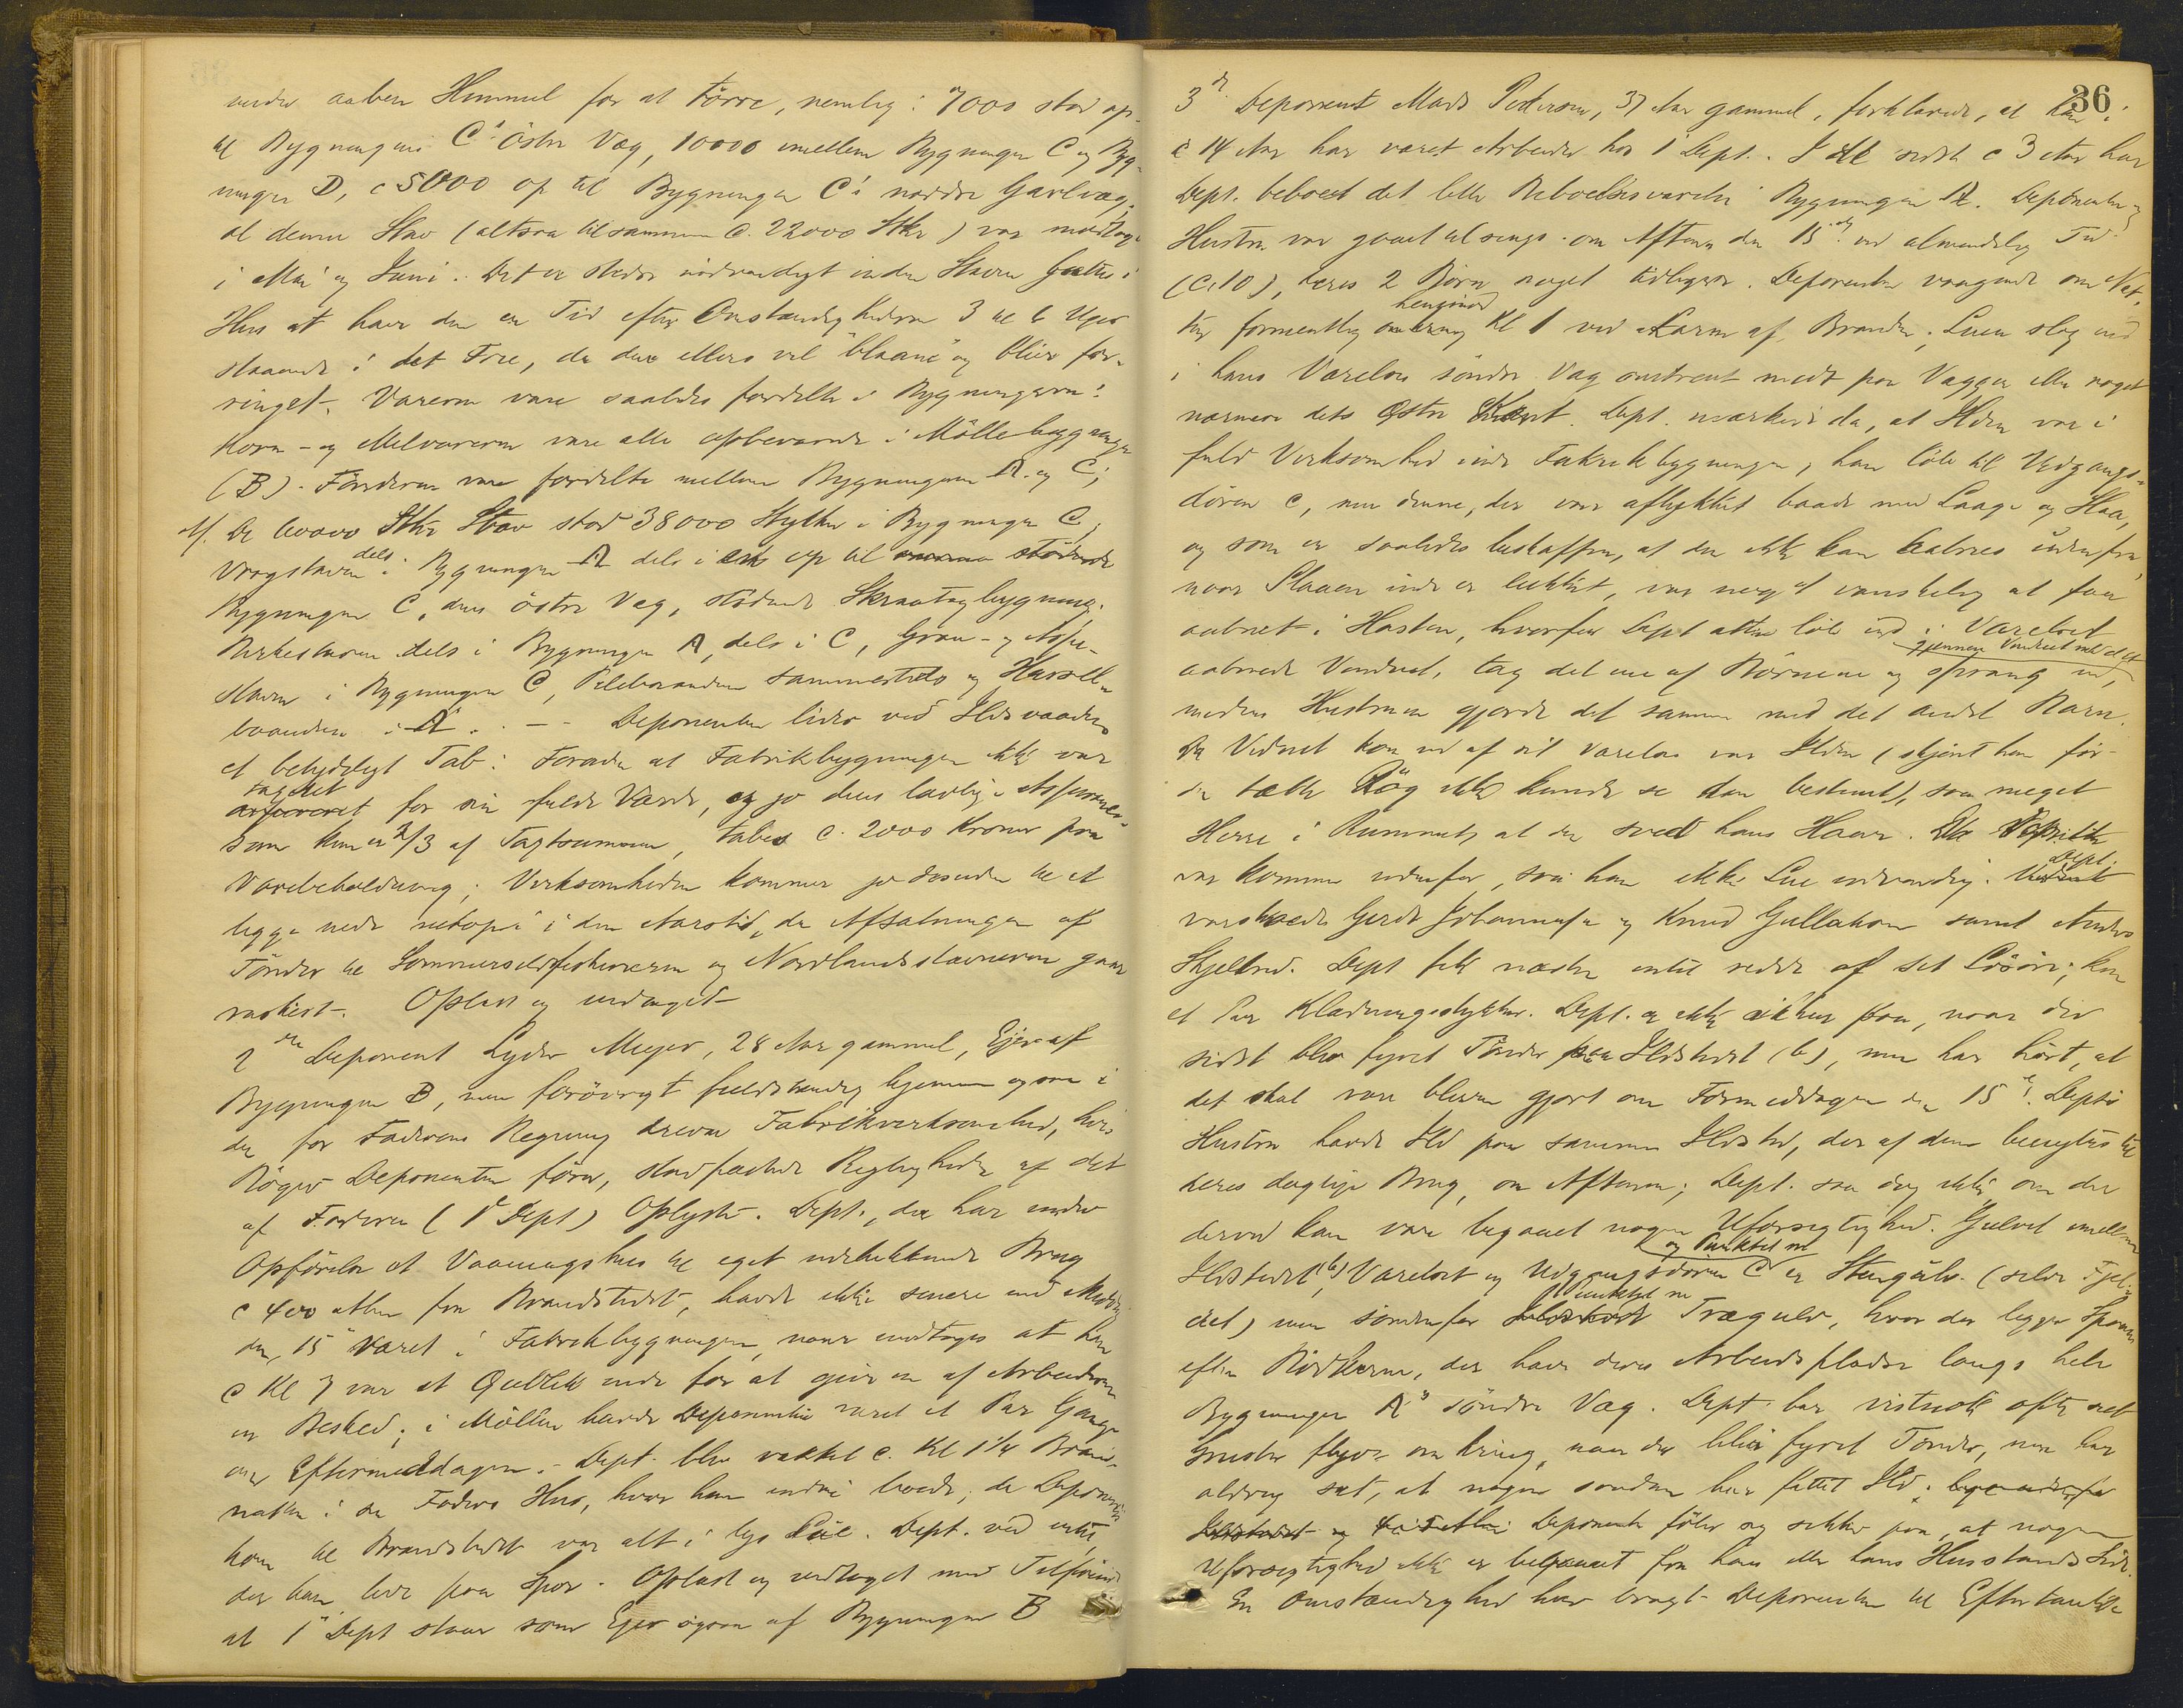 under aaben Himmel for at tørre, nemlig: 7000 stod op
til Bygningens C's østre Væg, 10000 mellem Bygningen C og Byg-
ningen D, c 5000 op til Bygningen C's nordre Gavlvæg;
al denne Stav (altsaa tilsammen c. 22000 Stkr) var modtaget
i Mai og Juni. Det er nemlig nødvendigt inden Staven sættes i
Hus at have den en Tid efter Omstændighederne 3 til 6 Uger
staaende i det Frie, da den ellers vil "blaane" og blive for-
ringet. Varerne vare saaledes fordelte i Bygningerne:
Korn- og Melvarerne vare alle opbevarede i Møllebygningen
(B). Tønderne vare fordelte mellem Bygningerne A. og C;
Af de 60000 Stkr Stav stod 38000 Stykker i Bygningen C,
Vragstaven dels i Bygningen A dels i op til stødende
Bygningen C, dens østre Væg, stødende Skraatagbygning;
Birkestaven dels i Bygningen A, dels i C, Gran- og Aspe-
staven i Bygningen C, Pilebaandene sammesteds og Hassel-
baandene i A. — Deponenten lider ved Ildsvaaden
et betydeligt Tab: Foruden at Fabrikbygningen ikke var
taxeret for sin fulde Værdi, og jo dens lovlige Assurance-
sum kun er 2/3 af Taxtsummen, tabes c. 2000 Kroner paa
Varebeholdning; Virksomheden kommer jo desuden til at
ligge nede netop i den Aarstid, da Afsætningen af
Tønder til Sommersildfiskerierne og Nordlandsstævnerne gaar
raskest. Oplæst og vedtaget
2den Deponent Lyder Meyer, 28 Aar gammel, Ejer af
Bygningen B, men forøvrigt fuldstændig hjemme ogsaa i
den for Faderens Regning drevne Fabrikvirksomhed, hvis
Bøger Deponenten fører, stadfæstede Rigtigheden af det
af Faderen (1ste Dept) Oplyste. Dept., der har under
Opførelse et Vaaningshus til eget vedkommende Brug
c 400 Alen fra Brandstedet, havde ikke senere end Middag
den 15de været i Fabrikbygningen, naar undtages at han
c Kl 7 var et Øieblik inde for at give en af Arbeiderne
en Besked; i Møllen havde Deponenten været et Par Gange
om Eftermiddagen. Dept. blev vækket c. Kl 1 1/4 Brand-
natten i sin Faders Hus, hvor han endnu boede; da Deponenten
kom til Brandstedet var alt i lys Lue. Dept. ved intet,
der kan lede paa Spor. Oplæst og vedtaget med Tilføiende
at 1ste Dept staar som Ejer ogsaa af Bygningen B
36
3die Deponent Mads Pedersen, 37 Aar gammel, forklarede, at han i
c 14 Aar har været Arbeider hos 1 Dept. I de sidste c 3 Aar har
Dept. beboet det lille Beboelsesværelse i Bygningen A. Deponenten og
Hustru var gaaet tilsengs om Aftenen den 15de ved almindelig Tid
(c. 10), deres 2 Børn noget tidligere. Deponenten vaagnede om Nat-
ten formentlig henimod Kl 1 ved Larm af Branden; Luen slog ind
i hans Værelses søndre Væg omtrent midt paa Væggen eller noget
nærmere dets østre Kant. Dept. mærkede da, at Ilden var i
fuld Virksomhed inde Fabrikbygningen; han løb til Udgangs-
døren c, men denne, der var aflukket baade med Laage og Slaa,
og som er saaledes beskaffen, at den ikke kan aabnes udenfra,
naar Slaaen inde er lukket, var noget vanskelig at faa
aabnet i Hasten, hvorfor Dept atter løb ind i Værelset
aabnede Vinduet, tog det ene af Børnene og sprang ud gjennem Vinduet med det,
medens Hustruen gjorde det samme med det andet Barn.
Da Vidnet kom ud af sit Værelse var Ilden (skjønt han for
den tætte Røg ikke kunde se den bestemt), saa meget
Herre i Rummet, at den sved hans Haar. Da Dept.
var kommen udenfor, saa han ikke Lue udvendig. Dept.
varskoede Gerdt Johannesen og Knud Gullaksen samt Anders
Skjelbred. Dept fik næsten intet reddet af sit Løsøre; kun
et Par Klædningsstykker. Dept. er ikke sikker paa, naar der
sidst blev fyret Tønder paa Ildstedet (b), men har hørt, at
det skal være blevet gjort om Formiddagen den 15de. Depts
Hustru havde Ild paa samme Ildsted, der af dem benyttes til
deres daglige Brug, om Aftenen; Dept. saa dog ikke, om der
derved kan være begaaet nogen Uforsigtighed. Gulvet mellem
Ildstedet (b), Værelset og Udgangsdøren C og Punktet m er Stengulv (selve Fjel-
det) men søndenfor Punktet m Trægulv, hvor der ligger Spaaner
efter Bødkerne, der have deres Arbeidspladse langs hele
Bygningen A's søndre Væg. Dept. har vistnok ofte set
Gnister flyve omkring, naar der blev fyret Tønder, men har
aldrig set, at nogen saadan har fattet Ild;
Deponenten føler sig sikker paa, at nogen
Uforsigtighed ikke er begaaet fra hans eller hans Husstands Side.
En Omstændighed har bragt Deponenten til Eftertanke